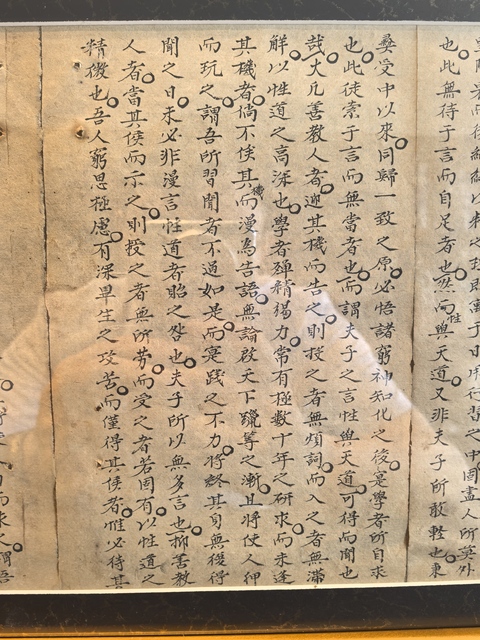 也此無待于言而自足者也然而性與天道又非夫子所敢輕也東
彜受中以來同歸一致之原必悟諸窮神知化之後寔學者所自求
也此徒索于言而無當者也而謂夫子之言性與天道可得而聞也
哉大凡善教人者迎其機而告之則授之者無煩詞而入之者無滯
解以性道之高深也學者殫精竭力常有極數十年之研求而未逢
其機者倘不俟其機而漫為告語無論啟天下躐等之漸且將使人狎
而玩之謂吾所習聞者不過如是而寔踐之不力將終其身無復得
聞之日未必非漫言性道者貽之咎也夫子所以無多言也抑善教
人者當其候而示之則授之者無所勞而受之者若固有以性道之
精微也吾人窮思極慮有深畢生之攻苦而僅得其候者惟必待其